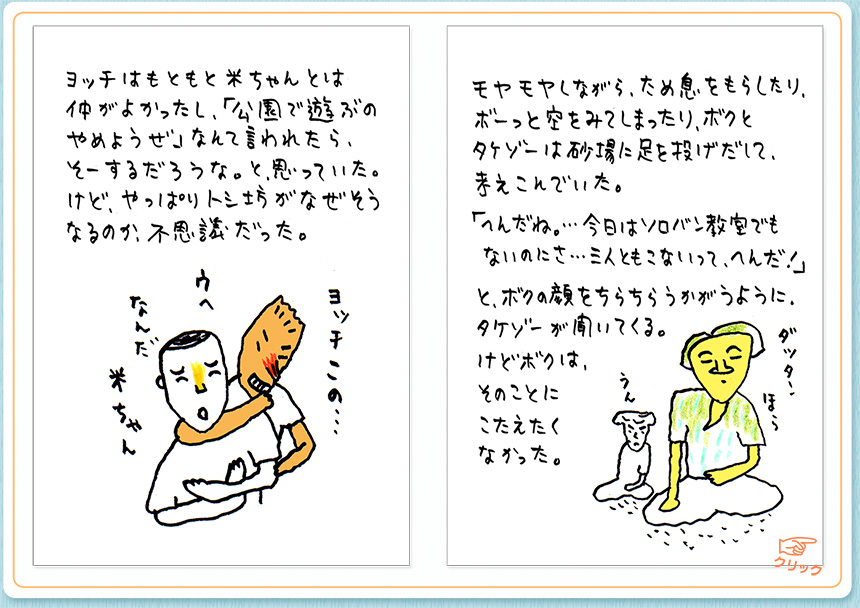 ヨッチはもともと米ちゃんとは
仲がよかったし、「公園で遊ぶの
やめようぜ」なんて言われたら、
そーするだろうな。と、思っていた。
けど、やっぱりトシ坊がなぜそう
なるのか、不思議だった。
ヨッチこの…
ウヘ
なんだ
米ちゃん
モヤモヤしながら、ため息をもらしたり、
ボーっと空をみてしまったり、ボクと
タケゾーは砂場に足を投げだして、
考えこんでいた。
「へんだね。…今日はソロバン教室でも
ないのにさ…三人ともこないって、へんだ!」
と、ボクの顔をちらちらうかがうように、
タケゾーが聞いてくる。
けどボクは、
そのことに
こたえたく
なかった。
ダッター
ほら
うん
クリック